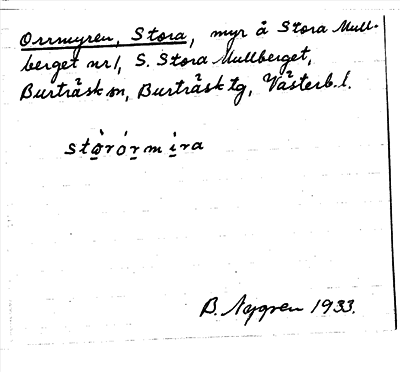 Orrmyren, Stora, myr å Stora Mull-
berget nr 1, S. Stora Mullberget,
Burträsk sn, Burträsk tg, Västerb. l.
stọ̀rórmi̠ra
B. Nygren 1933.